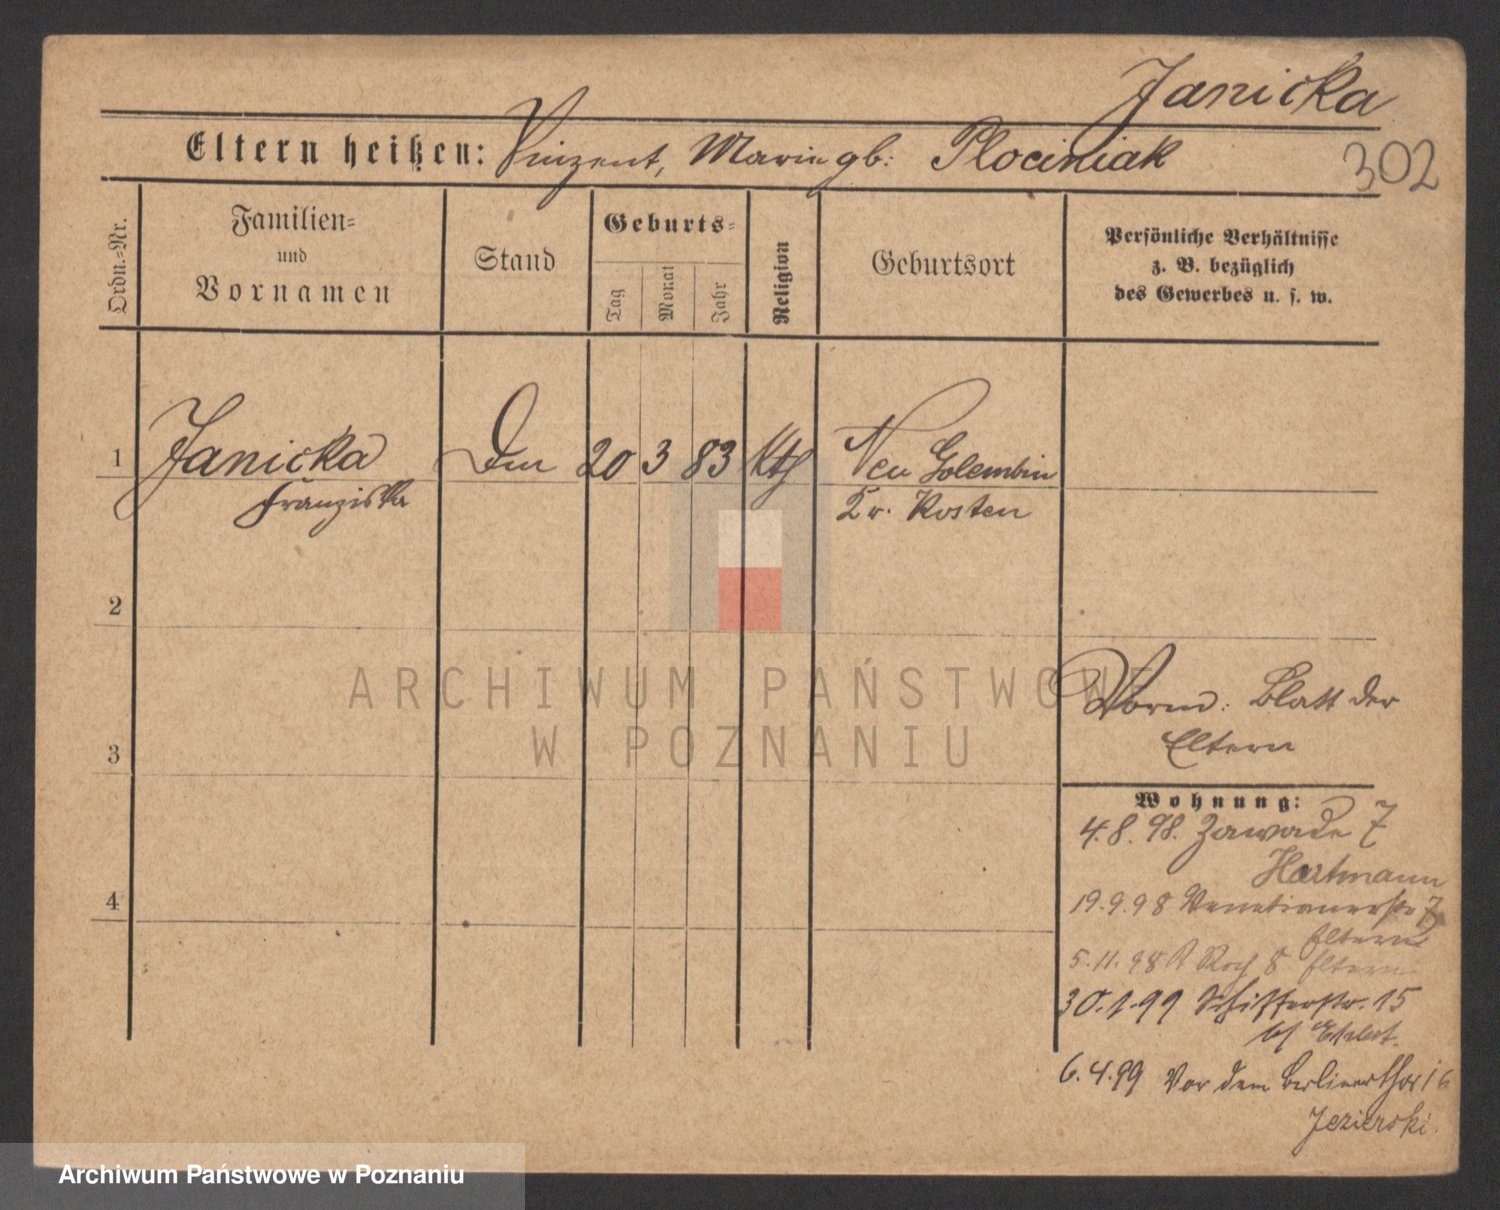 Janicka
Eltern heißen: Vinzent, Marie gb: Plociniak
302
Ordn.-Nr.
Familien-
und
Vornamen
Stand
Geburts-
Tag
Monat
Jahr
Religion
Geburtsort
Persönliche Verhältnisse
z. B. bezüglich
des Gewerbes u. s. w.
1 Janicka 20 3 83 Kth Neu Golembin
Franziska Kr. Kosten
2
ARCHIWUM PAŃSTWOWE
W POZNANIU
Vorm: Blatt der
Eltern
3
Wohnung:
4.8.98. Zawade 7
Hartmann
4
19.9.98 Venetianerstr 7
Eltern
5.11.98 Roch 8 Eltern
30.1.99 Schifferstr. 15
b/
6.4.99 Vor dem Berlinerthor 16
Jezierski.
Archiwum Państwowe w Poznaniu